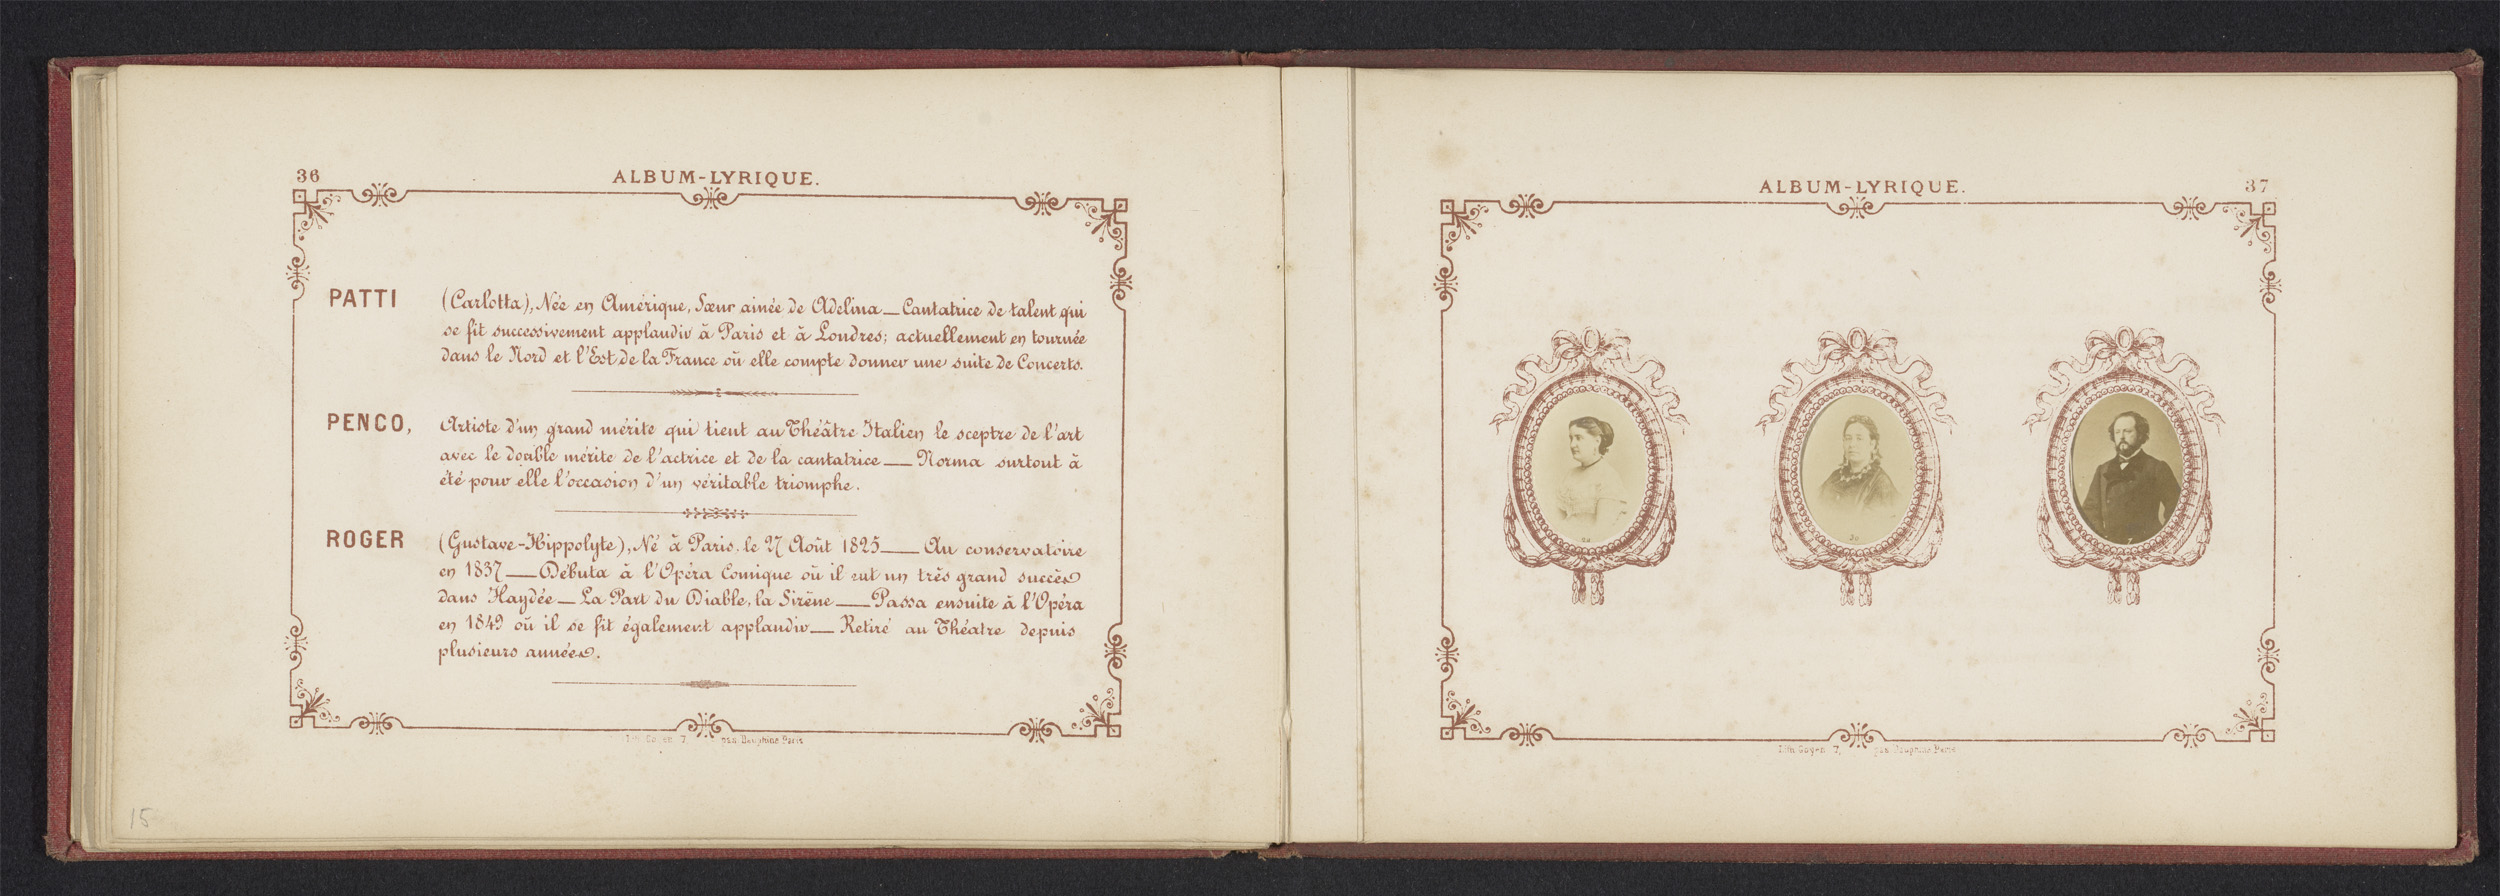 36
ALBUM-LYRIQUE.
PATTI (Carlotta), Née en Amérique, Sœur ainée de Adelina — Cantatrice de talent qui
se fit successivement applaudir à Paris et à Londres; actuellement en tournée
dans le Nord et l'Est de la France où elle compte donner une suite de Concerts.
PENCO, Artiste d'un grand mérite qui tient au Théâtre Italien le sceptre de l'art
avec le double mérite de l'actrice et de la cantatrice — Norma surtout à
été pour elle l'occasion d'un véritable triomphe.
ROGER (Gustave-Hippolyte), Né à Paris, le 27 Août 1825 — Au conservatoire
en 1837 — Débuta à l'Opéra Comique où il eut un très grand succès
dans Haydée — La Part du Diable, la Sirène — Passa ensuite à l'Opéra
en 1849 où il se fit également applaudir — Retiré au Théatre depuis
plusieurs années.
7, pas. Dauphine Paris
15
ALBUM-LYRIQUE.
37
30
7
Lith. Goyer. 7, pas. Dauphine Paris